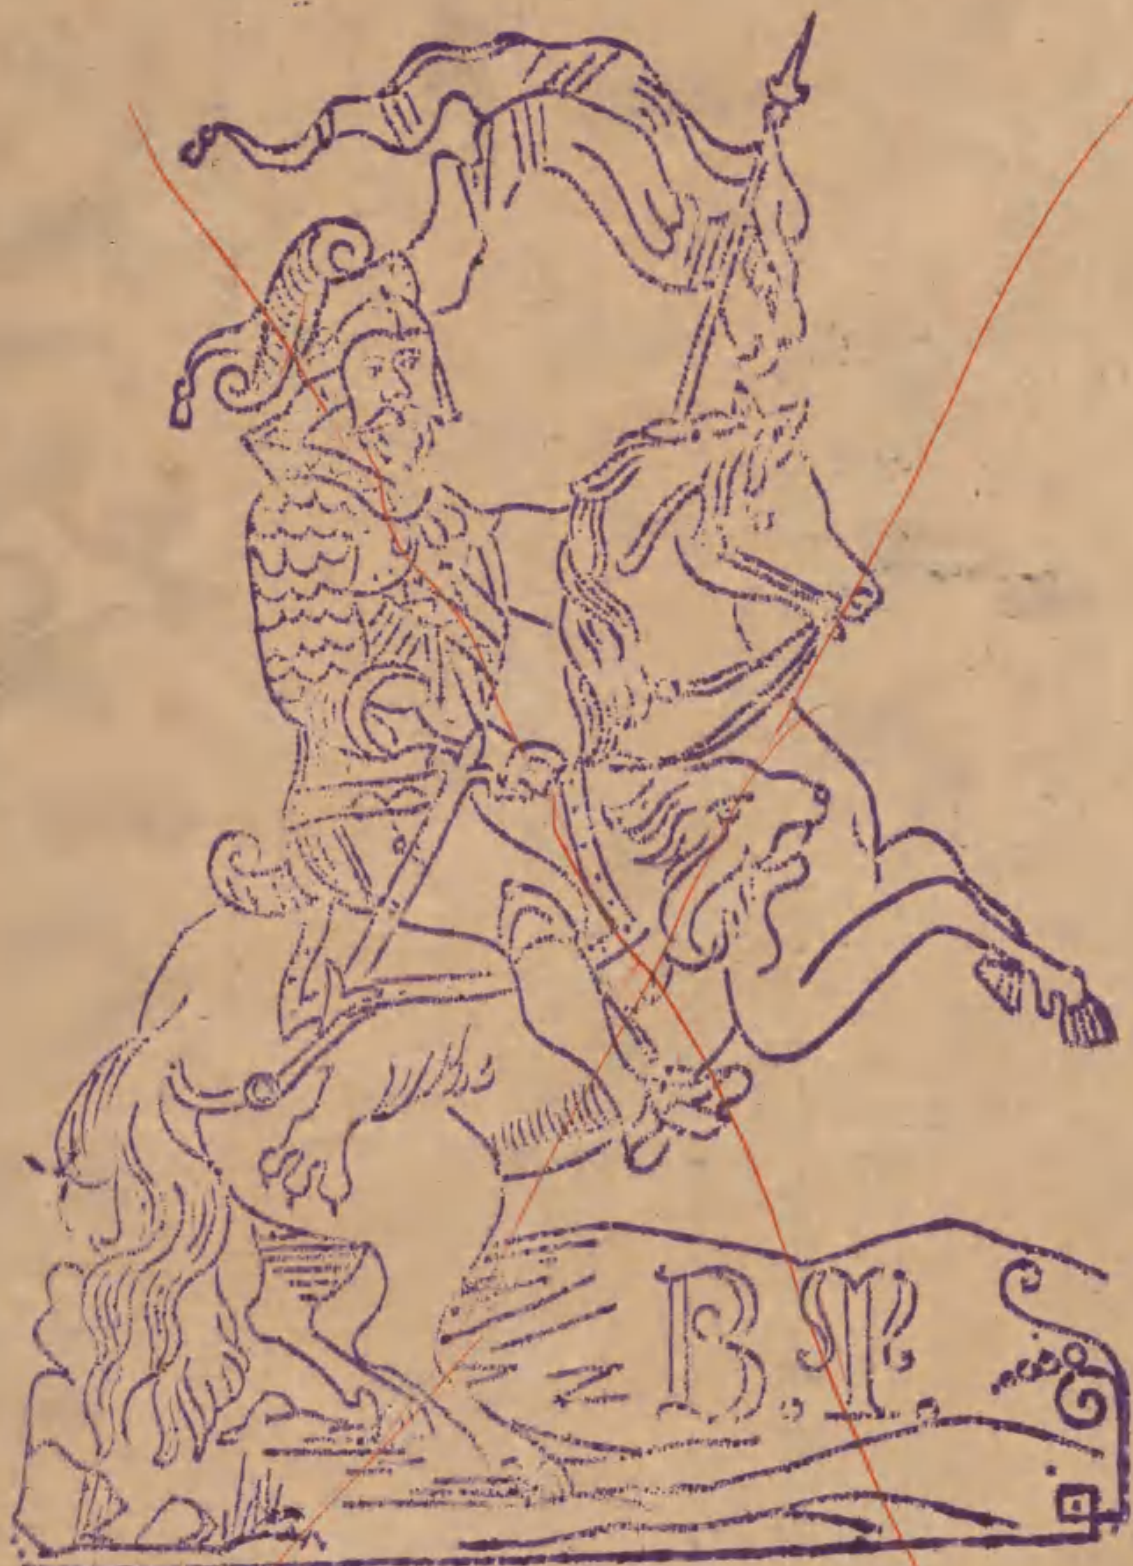 B. T.